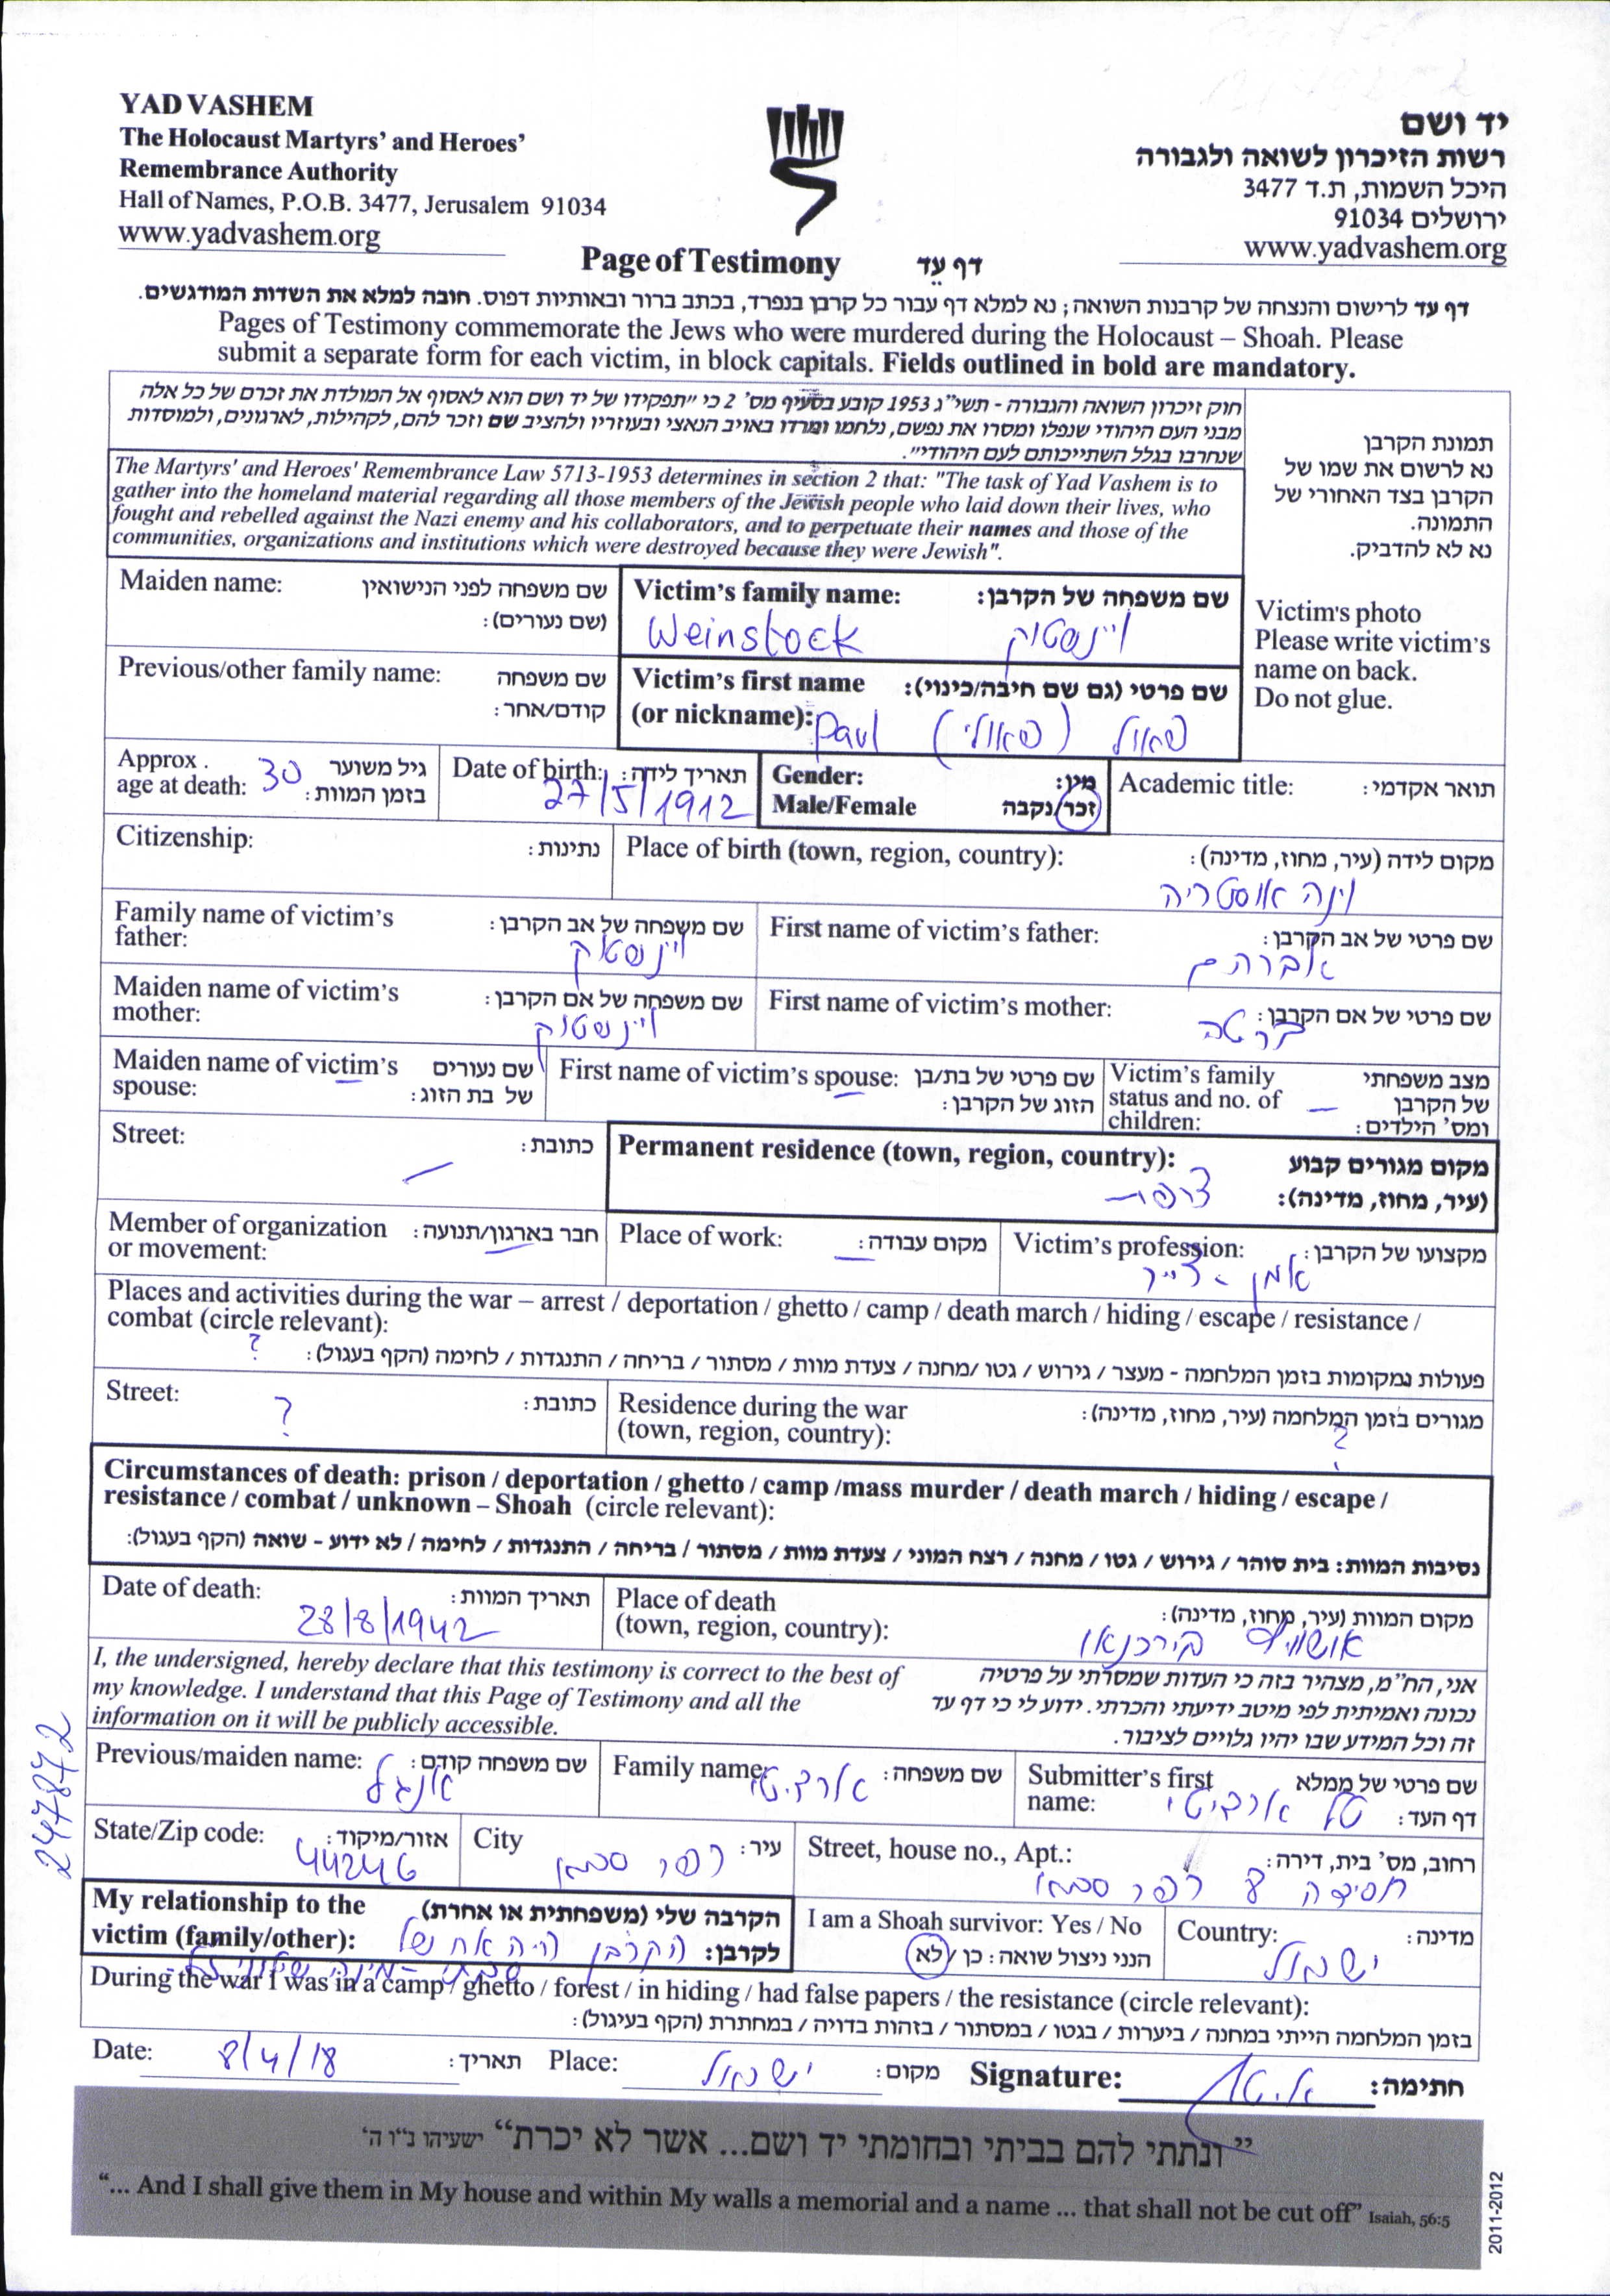 YAD VASHEM
The Holocaust Martyrs' and Heroes'
Remembrance Authority
Hall of Names, P.O.B. 3477, Jerusalem 91034
www.yadvashem.org
יד ושם
רשות הזיכרון לשואה ולגבורה
היכל השמות, ת.ד 3477
ירושלים 91034
www.yadvashem.org
Page of Testimony דף עֵד
דף עד לרישום והנצחה של קרבנות השואה; נא למלא דף עבור כל קרבן בנפרד, בכתב ברור ובאותיות דפוס. חובה למלא את השדות המודגשים.
Pages of Testimony commemorate the Jews who were murdered during the Holocaust – Shoah. Please
submit a separate form for each victim, in block capitals. Fields outlined in bold are mandatory.
חוק זיכרון השואה והגבורה - תשי"ג 1953 קובע בסעיף מס' 2 כי "תפקידו של יד ושם הוא לאסוף אל המולדת את זכרם של כל אלה
מבני העם היהודי שנפלו ומסרו את נפשם, נלחמו ומרדו באויב הנאצי ובעוזריו ולהציב שם וזכר להם, לקהילות, לארגונים, ולמוסדות
שנחרבו בגלל השתייכותם לעם היהודי".
The Martyrs' and Heroes' Remembrance Law 5713-1953 determines in section 2 that: "The task of Yad Vashem is to
gather into the homeland material regarding all those members of the Jewish people who laid down their lives, who
fought and rebelled against the Nazi enemy and his collaborators, and to perpetuate their names and those of the
communities, organizations and institutions which were destroyed because they were Jewish".
תמונת הקרבן
נא לרשום את שמו של
הקרבן בצד האחורי של
התמונה.
נא לא להדביק.
Victim's photo
Please write victim's
name on back.
Do not glue.
Maiden name: שם משפחה לפני הנישואין
(שם נעורים):
Victim's family name: שם משפחה של הקרבן:
Weinstock ויינשטוק
Previous/other family name: שם משפחה
קודם/אחר:
Victim's first name שם פרטי (גם שם חיבה/כינוי):
(or nickname): Paul (פאולי) פאול
Approx. גיל משוער
age at death: 30 בזמן המוות:
Date of birth: תאריך לידה:
27/5/1912
Gender: מין:
Male/Female זכר/נקבה
Academic title: תואר אקדמי:
Citizenship: נתינות:
Place of birth (town, region, country): מקום לידה (עיר, מחוז, מדינה):
וינה אוסטריה
Family name of victim's שם משפחה של אב הקרבן:
father: ויינשטוק
First name of victim's father: שם פרטי של אב הקרבן:
אברהם
Maiden name of victim's שם משפחה של אם הקרבן:
mother: ויינשטוק
First name of victim's mother: שם פרטי של אם הקרבן:
ברטה
Maiden name of victim's שם נעורים
spouse: של בת הזוג:
First name of victim's spouse: שם פרטי של בת/בן
הזוג של הקרבן:
Victim's family מצב משפחתי
status and no. of של הקרבן
children: ומס' הילדים:
Street: כתובת:
Permanent residence (town, region, country): מקום מגורים קבוע
צרפת (עיר, מחוז, מדינה):
Member of organization חבר בארגון/תנועה:
or movement:
Place of work: מקום עבודה:
Victim's profession: מקצועו של הקרבן:
אמן - צייר
Places and activities during the war – arrest / deportation / ghetto / camp / death march / hiding / escape / resistance /
combat (circle relevant):
?
פעולות ומקומות בזמן המלחמה - מעצר / גירוש / גטו /מחנה / צעדת מוות / מסתור / בריחה / התנגדות / לחימה (הקף בעגול):
Street: ? כתובת:
Residence during the war מגורים בזמן המלחמה (עיר, מחוז, מדינה):
(town, region, country): ?
Circumstances of death: prison / deportation / ghetto / camp /mass murder / death march / hiding / escape /
resistance / combat / unknown – Shoah (circle relevant):
נסיבות המוות: בית סוהר / גירוש / גטו / מחנה / רצח המוני / צעדת מוות / מסתור / בריחה / התנגדות / לחימה / לא ידוע - שואה (הקף בעגול):
Date of death: תאריך המוות:
28/8/1942
Place of death מקום המוות (עיר, מחוז, מדינה):
(town, region, country): אושוויץ בירכנאו
I, the undersigned, hereby declare that this testimony is correct to the best of
my knowledge. I understand that this Page of Testimony and all the
information on it will be publicly accessible.
אני, הח"מ, מצהיר בזה כי העדות שמסרתי על פרטיה
נכונה ואמיתית לפי מיטב ידיעתי והכרתי. ידוע לי כי דף עד
זה וכל המידע שבו יהיו גלויים לציבור.
Previous/maiden name: שם משפחה קודם:
אנגל
Family name: שם משפחה:
ארביטי
Submitter's first שם פרטי של ממלא
name: טל ארביטי דף העד:
State/Zip code: אזור/מיקוד:
44246
City עיר:
כפר סבא
Street, house no., Apt.: רחוב, מס' בית, דירה:
חסידה 8 כפר סבא
My relationship to the הקרבה שלי (משפחתית או אחרת)
victim (family/other): לקרבן: הקרבן היה אח של
סבתי
I am a Shoah survivor: Yes / No
הנני ניצול שואה: כן / לא
Country: מדינה:
ישראל
During the war I was in a camp / ghetto / forest / in hiding / had false papers / the resistance (circle relevant):
בזמן המלחמה הייתי במחנה / ביערות / בגטו / במסתור / בזהות בדויה / במחתרת (הקף בעיגול):
Date: 8/4/18 תאריך: Place: ישראל מקום: Signature: חתימה:
"ונתתי להם בביתי ובחומתי יד ושם... אשר לא יכרת" ישעיהו נ"ו ה'
"... And I shall give them in My house and within My walls a memorial and a name ... that shall not be cut off" Isaiah, 56:5
2011-2012
247872